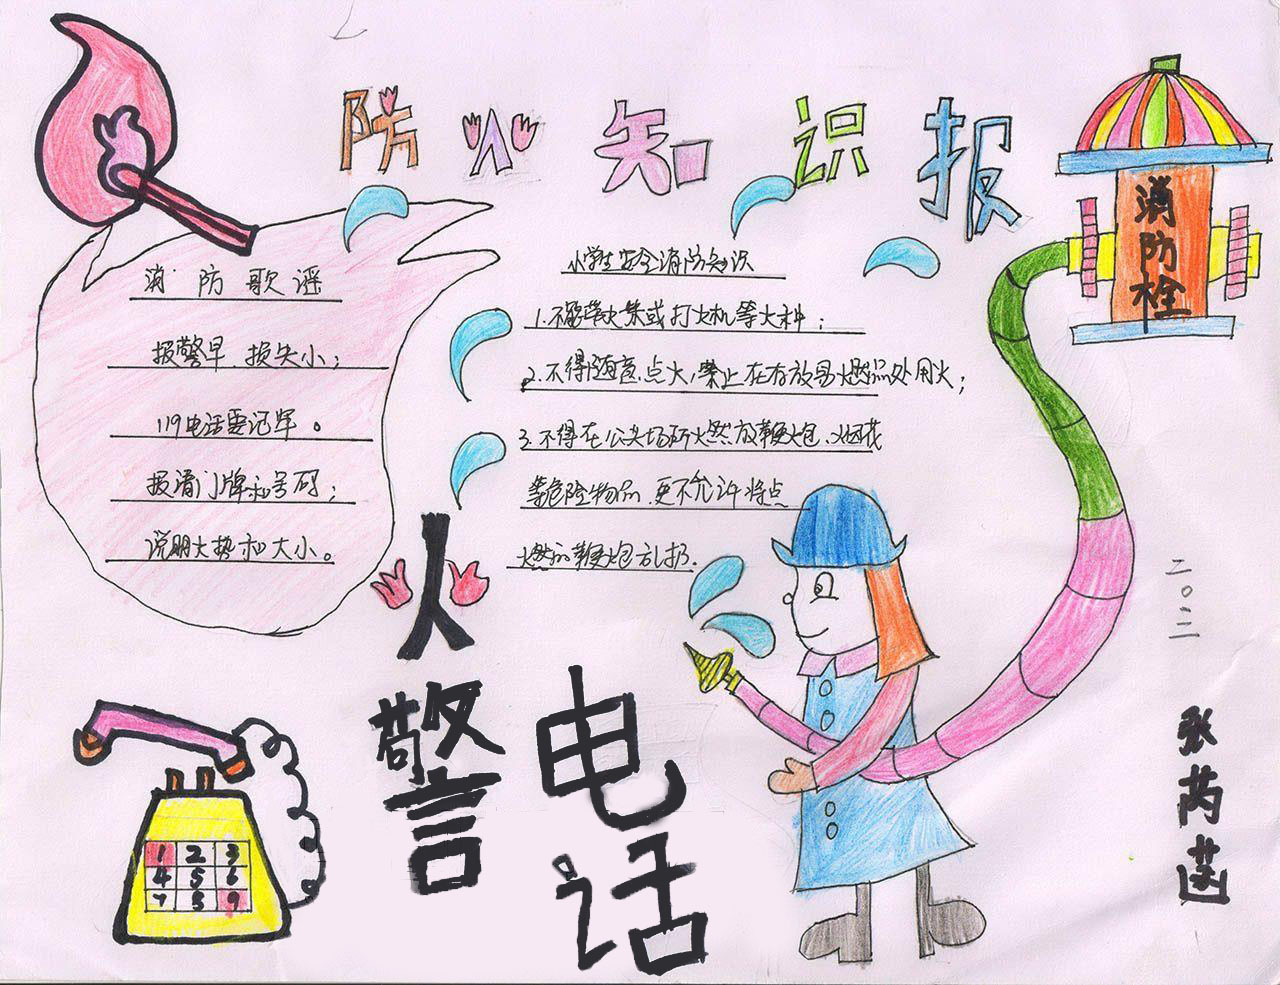 防火知识报
消防栓
消防歌谣
报警早、损失小；
119电话要记牢。
报清门牌和号码；
说明火势和大小。
小学生安全消防知识
1.不能带火柴或打火机等火种；
2.不得随意点火，禁止在存放易燃品处用火；
3.不得在公共场所燃放鞭炮、烟花
等危险物品，更不允许将点
燃的鞭炮乱扔.
火警电话
1 2 3
4 5 6
7 8 9
二〇二
张芮